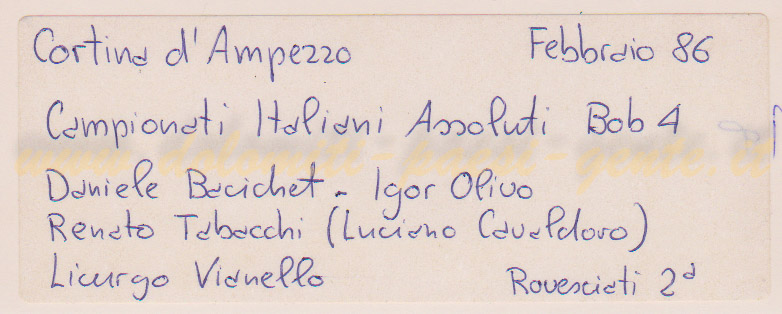 Cortina d'Ampezzo Febbraio 86
Campionati Italiani Assoluti Bob 4
Daniele Bacichet - Igor Olivo
Renato Tabacchi (Luciano Cavaldoro)
Licurgo Vianello Rovesciati 2ª